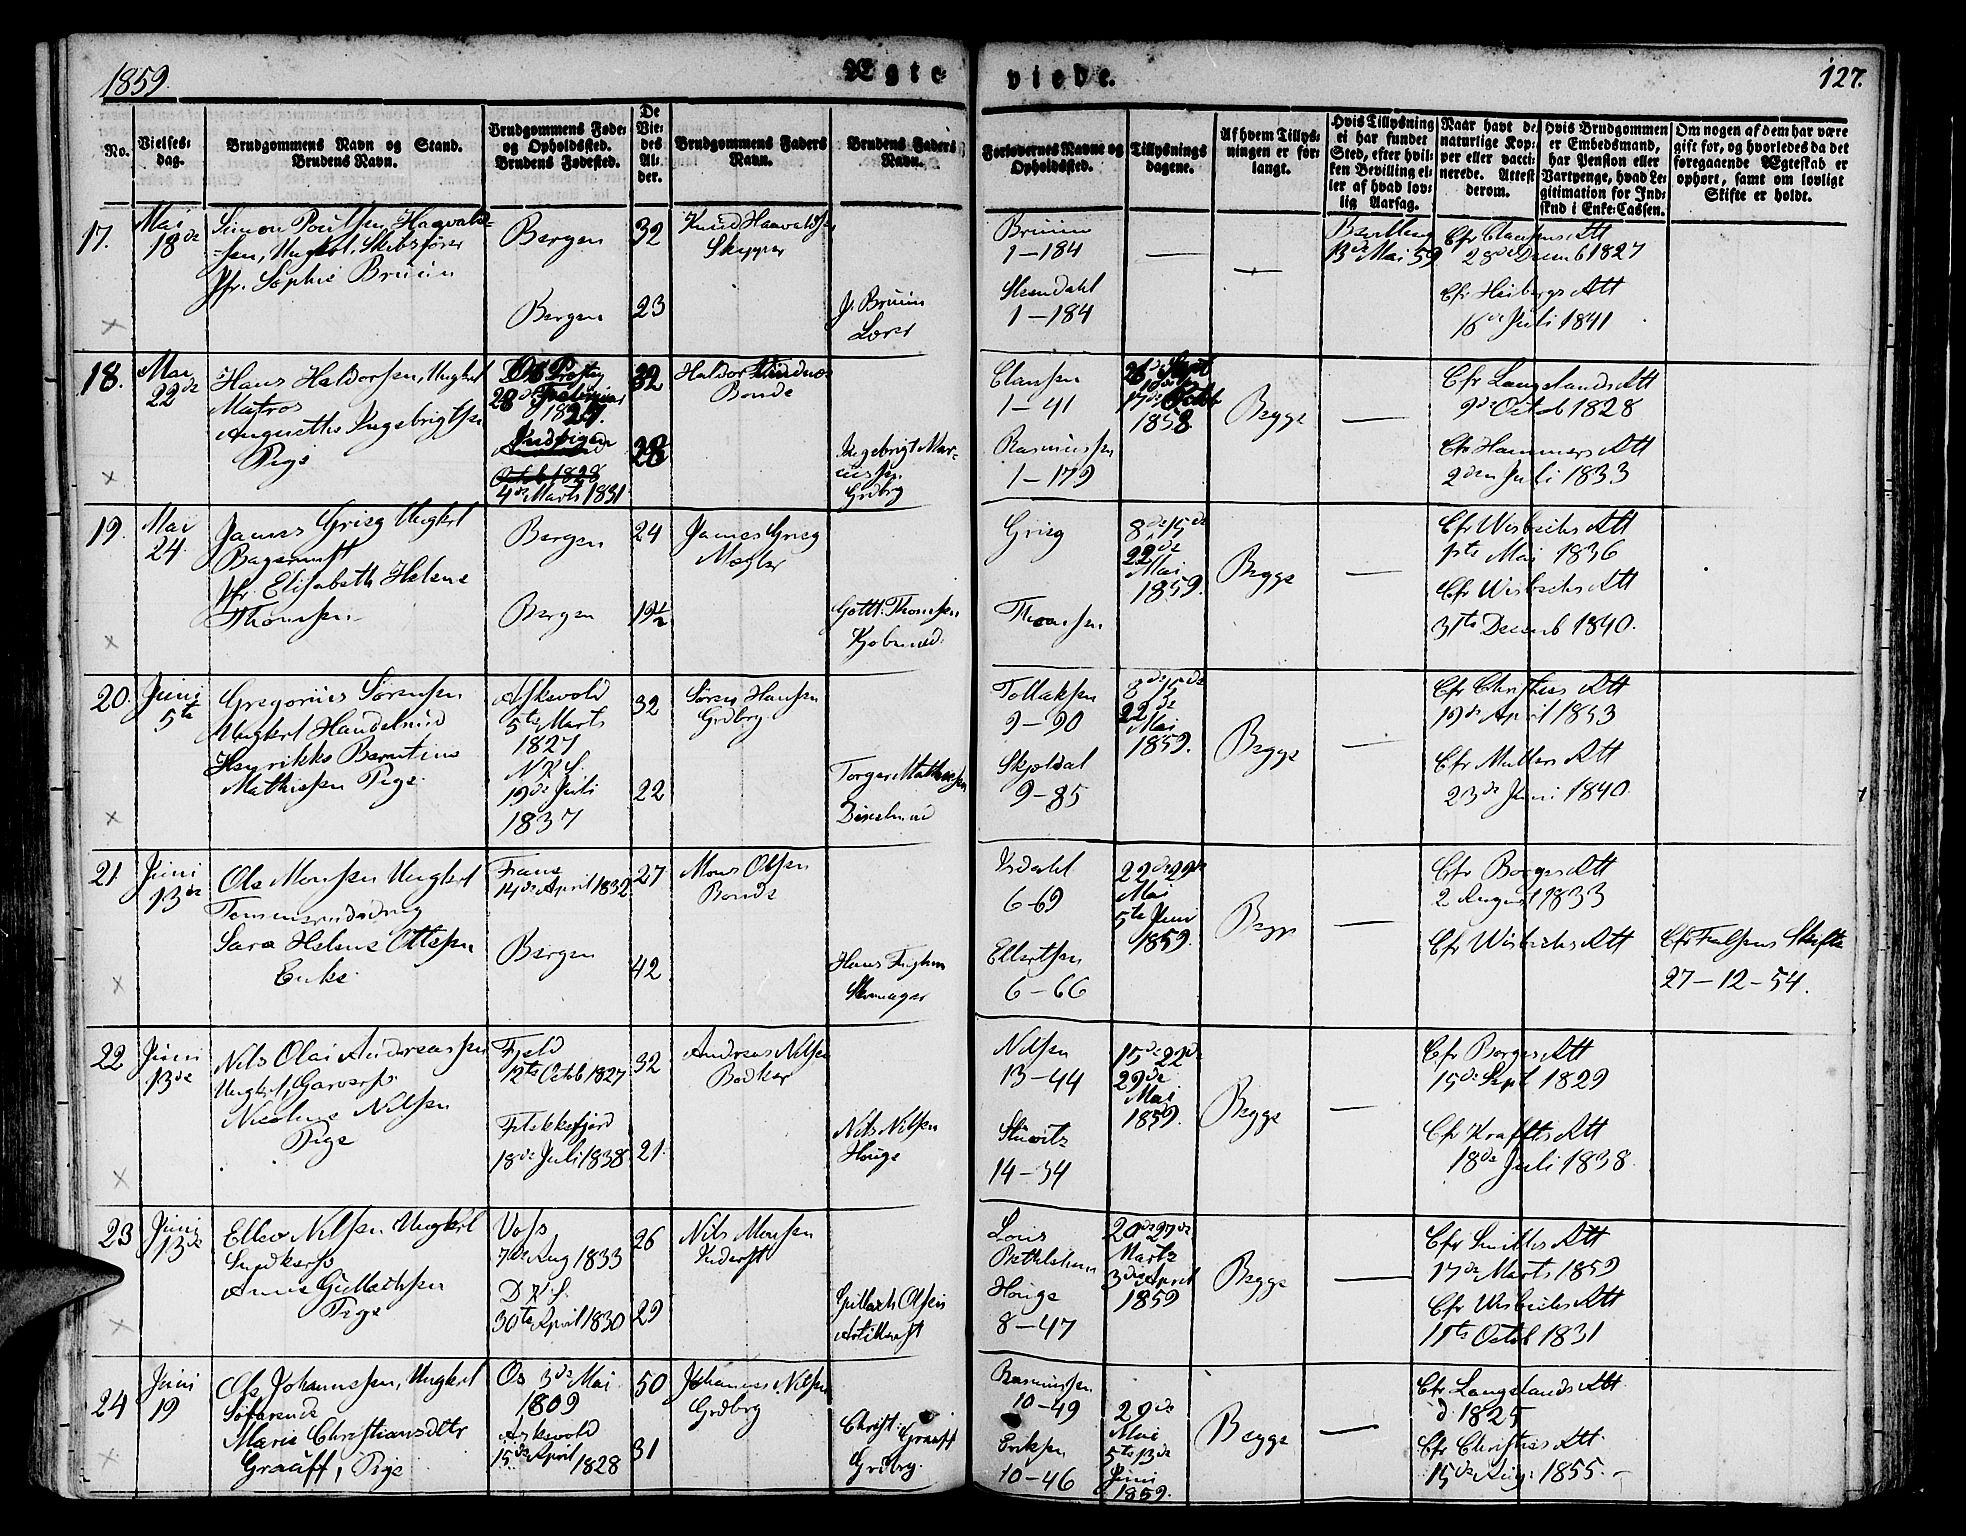 1859.
Ægte
viede.
127.
No.
Vielses-
dag.
Brudgommens Navn og Stand.
Brudens Navn.
Brudgommens Føde-
og Opholdssted.
Brudens Fødested.
De
Vie-
des
Al-
der.
Brudgommens Faders
Navn.
Brudens Faders
Navn.
Forlovernes Navne og
Opholdssted.
Tillysnings
dagene.
Af hvem Tillys-
ningen er for-
langt.
Hvis Tillysning
ei har fundet
Sted, efter hvil-
ken Bevilling el-
ler af hvad lov-
lig Aarsag.
Naar havt de
naturlige Kop-
per eller vacci-
nerede. Attest
derom.
Hvis Brudgommen
er Embedsmand,
har Pension eller
Vartpenge, hvad Le-
gitimation for Ind-
skud i Enke-Cassen.
Om nogen af dem har være
gift før, og hvorledes da det
foregaaende Ægteskab er
ophørt, samt om lovligt
Skifte er holdt.
17.
Mai
18de
Simon Poulsen Hagvald-
sen, Ungkl. Skibsfører
Jfr. Sophie Bruun
Bergen
Bergen
32
23
Knud Haavaldsen
Skipper
J. Bruun
Lærer
Bruun
1-184
Steendahl
1-184
—
—
Bevilling
13de Mai 59
Cfr Clausens Att
28de Decemb 1827
Cfr Heibergs Att
16de Juli 1841
18.
Mai
22de
Hans Haldorsen, Ungkrl
Matros
Augusthe Ingebrigtsen
Pige
1827.
Octob 1828
4de Marts 1831
32
28
Haldor
Bonde
Ingebrigt Mar-
cussen
Grdbrg
Clausen
1-41
Rasmussen
1-179
1858
Begge
—
Cfr Langelands Att
9de Octob 1828
Cfr Hammers Att
2den Juli 1833
19.
Mai
24.
James Grieg Ungkrl
Bagersvnd
Jfr. Elisabeth Helene
Thomsen
Bergen
Bergen
24
19½
James Grieg
Mægler
Gottl. Thomsen
Kjøbmnd.
Grieg
Thomsen
8de 15de
22de
Mai
1859.
Begge
—
Cfr Wisbechs Att
1ste Mai 1836
Cfr Wisbechs Att
31te Decemb 1840.
20.
Juni
5te
Gregorius Sørensen
Ungkrl Handelsmd
Henrikke Berntine
Mathiesen Pige.
Askevold
5te Marts
1827
N.K.S.
19de Juli
1837
32
22
Søren Hansen
Grdbrg
Torger Mathiesen
Tollaksen
9-90
Skjoldal
9-85
8de 15de
22de
Mai
1859.
Begge
—
Cfr Christies Att
19de April 1853
Cfr Mullers Att
23de Juni 1840.
21
Juni
13de
Ole Monsen Ungkrl
Sara Helene Ottesen
Enke
Fane
14de April 1832
Bergen
27
42
Mons Olsen
Bonde
Hans
Skomager
6-69
Ellertsen
6-66
22de 29de
Mai
5te Juni
1859.
Begge
—
Cfr Borges Att
2 August 1833
Cfr Wisbechs Att
Cfr Falsens Skifte
27-12-54.
22
Juni
13de
Nils Olai Andreassen
Ungkrl, Garversv
Nicoline Nilsen
Pige
Fjeld
12te Octob 1827
Flekkefjord
18de Juli 1838
32
21.
Andreas Nilsen
Bødker
Nils Nilsen
Houge
Nilsen
13-44
Stuwitz
14-34
15de 22de
29de
Mai
1859.
Begge
—
Cfr Borges Att
15de Sept 1829
Cfr Krafts Att
18de Juli 1838.
23
Juni
13de
Ellev Nilsen Ungkrl
Snedkersv
Anne Gullachsen
Pige
Voss
7de Aug 1833
D.K.S.
30te April 1830
26
29
Nils Monsen
Inderst
Gullach Olsen
Artillerist
Louis
Bethlehem
Houge
8-47
20de 27de
Marts
3die April
1859
Begge
—
Cfr Smitts Att
17de Marts 1859
Cfr Wisbechs Att
11te Octob 1831
24
Juni
19
Ole Johannesen, Ungkrl
Søfarende
Marie Christiansdtr
Graaff, Pige
Os 3de Mai
1809
Askevold
15de April 1828
50
31
Johannes Nilsen
Grdbrg
Christ: Graaff
Grdbrg.
Rasmussen
10-49
Eriksen
10-46
29de
Mai
5te 13de
Juni
1859.
Begge
—
Cfr Langelands Att.
d. 1825
Cfr Christies Att.
15de Aug: 1855.-